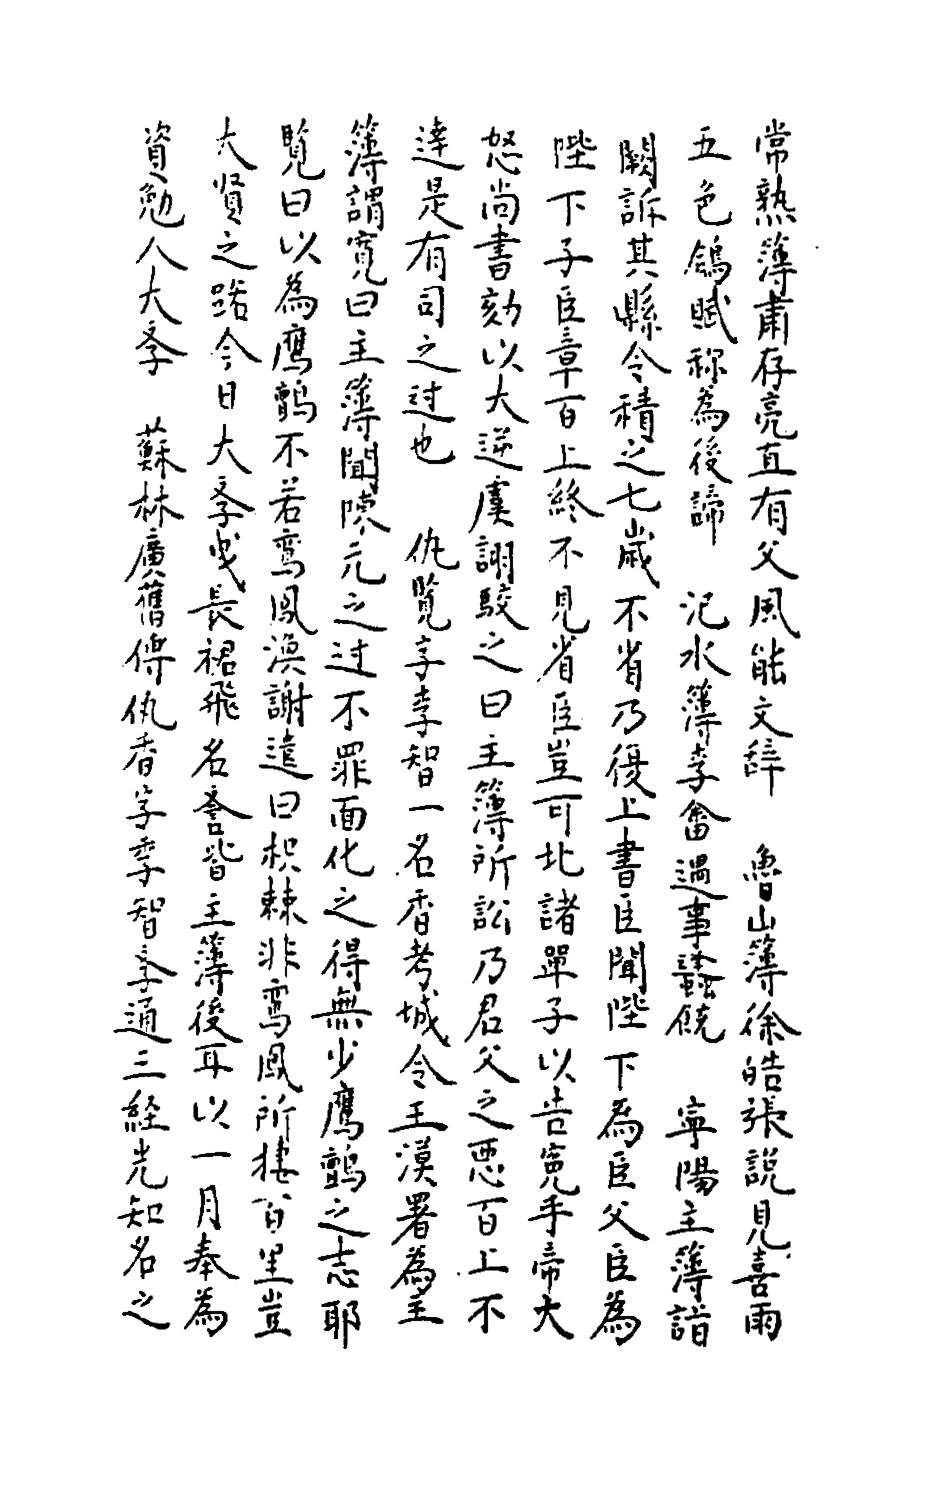 常熟簿肅存亮直有父風能文辞　魯山簿徐皓張説見喜雨
五色鴿賦称為後諦　汜水簿李畬遇事蠭饒　寧陽主簿詣
闕訴其縣令積之七歲不省乃復上書臣聞陛下為臣父臣為
陛下子臣章百上終不見省臣豈可北諸單子以告寃乎帝大
怒尚書劾以大逆虞詡駮之曰主簿所訟乃君父之悪百上不
達是有司之过也　仇覧字季智一名香考城令王渙署為主
簿謂寛曰主簿聞陳元之过不罪面化之得無少鷹鸇之志耶
覧曰以為鷹鸇不若鸾鳳渙謝遣曰枳棘非鸾鳳所棲百里豈
大賢之路今日大李曳長裙飛名誉皆主簿後耳以一月奉為
資勉入大李　蘇林廣舊傳仇香字季智李通三経光知名之